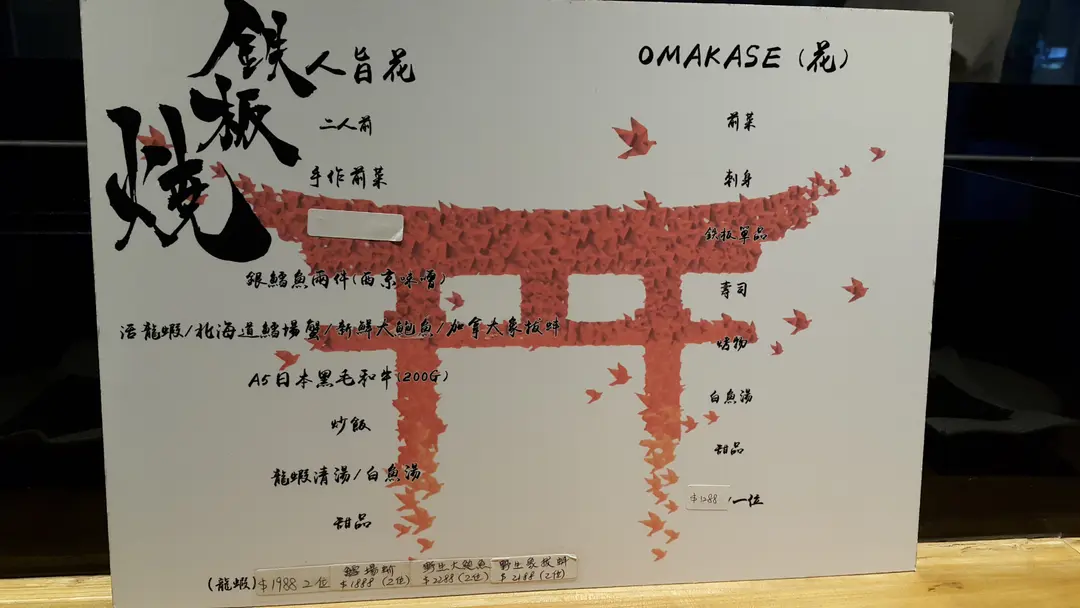 鉄板燒
人旨花
二人前
手作前菜
銀鱈魚兩件(西京味噌)
活龍蝦/北海道鱈場蟹/新鮮大鮑魚/加拿大象拔蚌
A5日本黑毛和牛(200G)
炒飯
龍蝦清湯/白魚湯
甜品
(龍蝦) $1988 2位
鱈場蚧 $1888 (2位)
野生大鮑魚 $2288 (2位)
野生象拔蚌 $2188 (2位)
OMAKASE (花)
前菜
刺身
鉄板單品
寿司
烤物
白魚湯
甜品
$1288 /一位